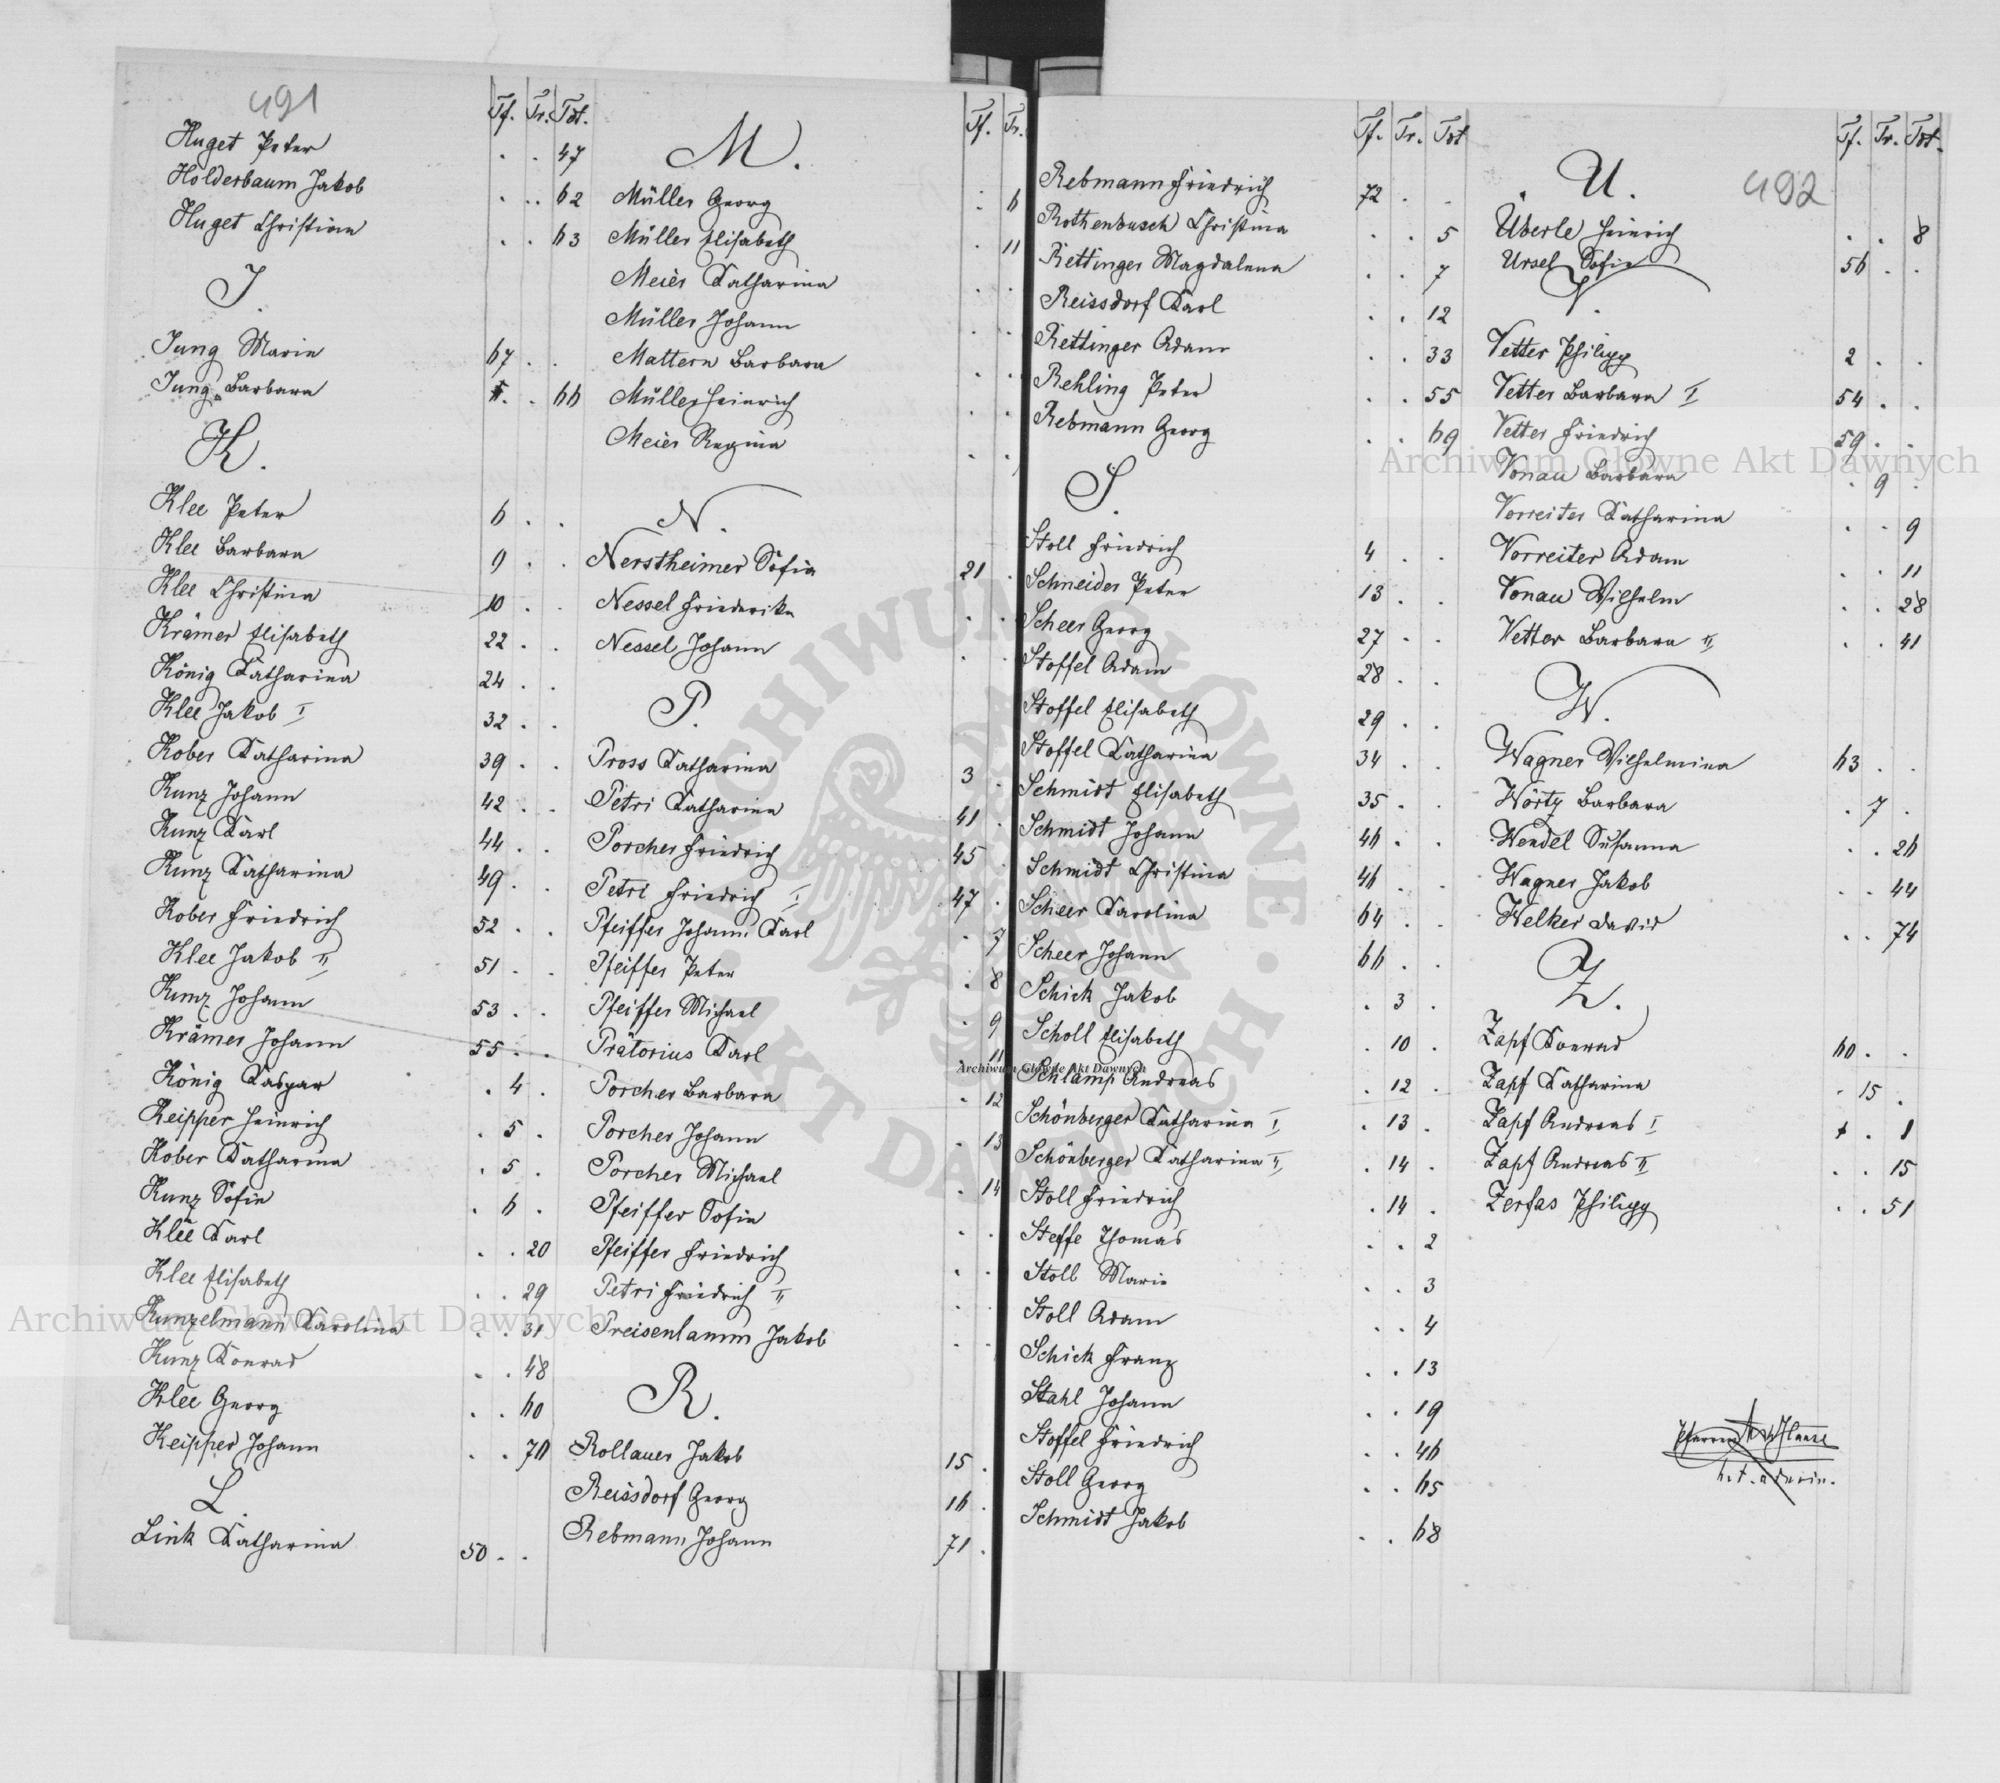 491
Tf. Tr. Tot.
Huget Peter . . 47
Holderbaum Jakob . . 62
Huget Christian . . 63
J.
Jung Maria 67 . .
Jung Barbara . . 66
K.
Klee Peter 6 . .
Klee Barbara 9 . .
Klee Christina 10 . .
Krämer Elisabeth 22 . .
König Katharina 24 . .
Klee Jakob I 32 . .
Kober Katharina 39 . .
Kunz Johann 42 . .
Kunz Karl 44 . .
Kunz Katharina 49 . .
Kober Friedrich 52 . .
Klee Jakob II 51 . .
Kunz Johann 53 . .
Krämer Johann 55 . .
König Kaspar . 4 .
Keipper Heinrich . 5 .
Kober Katharina . 5 .
Kunz Sofie . 6 .
Klee Karl . . 20
Klee Elisabeth . . 29
Kunzelmann Karolina . . 31
Kunz Konrad . . 48
Klee Georg . . 60
Keipper Johann . . 70
L.
Link Katharina 50 . .
Tf. Tr.
M.
Müller Georg . 6
Müller Elisabeth . 11
Meier Katharina . .
Müller Johann . .
Mattern Barbara . .
Müller Heinrich . .
Meier Regina . .
N.
Nerstheimer Sofia 21 .
Nessel Friederika . .
Nessel Johann . .
P.
Pross Katharina 3 .
Petri Katharina 41 .
Porcher Friedrich 45 .
Petri Friedrich I 47 .
Pfeiffer Johann Karl . 7
Pfeiffer Peter . 8
Pfeiffer Michael . 9
Prätorius Karl . 11
Porcher Barbara . 12
Porcher Johann . 13
Porcher Michael . 14
Pfeiffer Sofie . .
Pfeiffer Friedrich . .
Petri Friedrich II . .
Preisenlamm Jakob . .
R.
Rollauer Jakob 15 .
Reissdorf Georg 16 .
Rebmann Johann 71 .
Tf. Tr. Tot
Rebmann Friedrich 72 . .
Rothenbusch Christina . . 5
Rettinger Magdalena . . 7
Reissdorf Karl . . 12
Rettinger Adam . . 33
Rehling Peter . . 55
Rebmann Georg . . 69
S.
Stoll Friedrich 4 . .
Schneider Peter 13 . .
Scheer Georg 27 . .
Stoffel Adam 28 . .
Stoffel Elisabeth 29 . .
Stoffel Katharina 34 . .
Schmidt Elisabeth 35 . .
Schmidt Johann 46 . .
Schmidt Christina 46 . .
Scheer Karolina 64 . .
Scheer Johann 66 . .
Schick Jakob . 3 .
Scholl Elisabeth . 10 .
Schlamp Andreas . 12 .
Schönberger Katharina I . 13 .
Schönberger Katharina II . 14 .
Stoll Friedrich . 14 .
Steffe Thomas . . 2
Stoll Marie . . 3
Stoll Adam . . 4
Schick Franz . . 13
Stahl Johann . . 19
Stoffel Friedrich . . 46
Stoll Georg . . 65
Schmidt Jakob . . 68
492
Tf. Tr. Tot.
U.
Überle Heinrich . . 8
Ursel Sofie 56 . .
V.
Vetter Philipp 2 . .
Vetter Barbara I 54 . .
Vetter Friedrich 59 . .
Vonau Barbara . 9 .
Vorreiter Katharina . . 9
Vorreiter Adam . . 11
Vonau Wilhelm . . 28
Vetter Barbara II . . 41
W.
Wagner Wilhelmina 63 . .
Wörtz Barbara . 7 .
Wendel Susanna . . 26
Wagner Jakob . . 44
Welker David . . 74
Z.
Zapf Konrad 60 . .
Zapf Katharina . 15 .
Zapf Andreas I . . 1
Zapf Andreas II . . 15
Zerfas Philipp . . 51
Archiwum Główne Akt Dawnych
Archiwum Główne Akt Dawnych
Archiwum Główne Akt Dawnych
ARCHIWUM GŁÓWNE AKT DAWNYCH